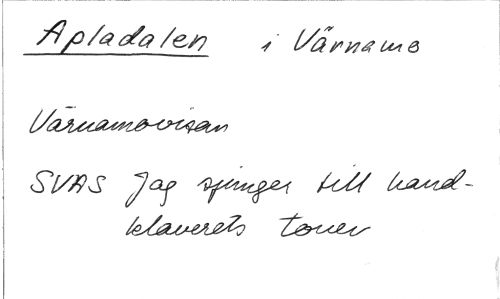 Apladalen i Värnamo
Värnamovisan
SVAS Jag sjunger till hand-
klaverets toner